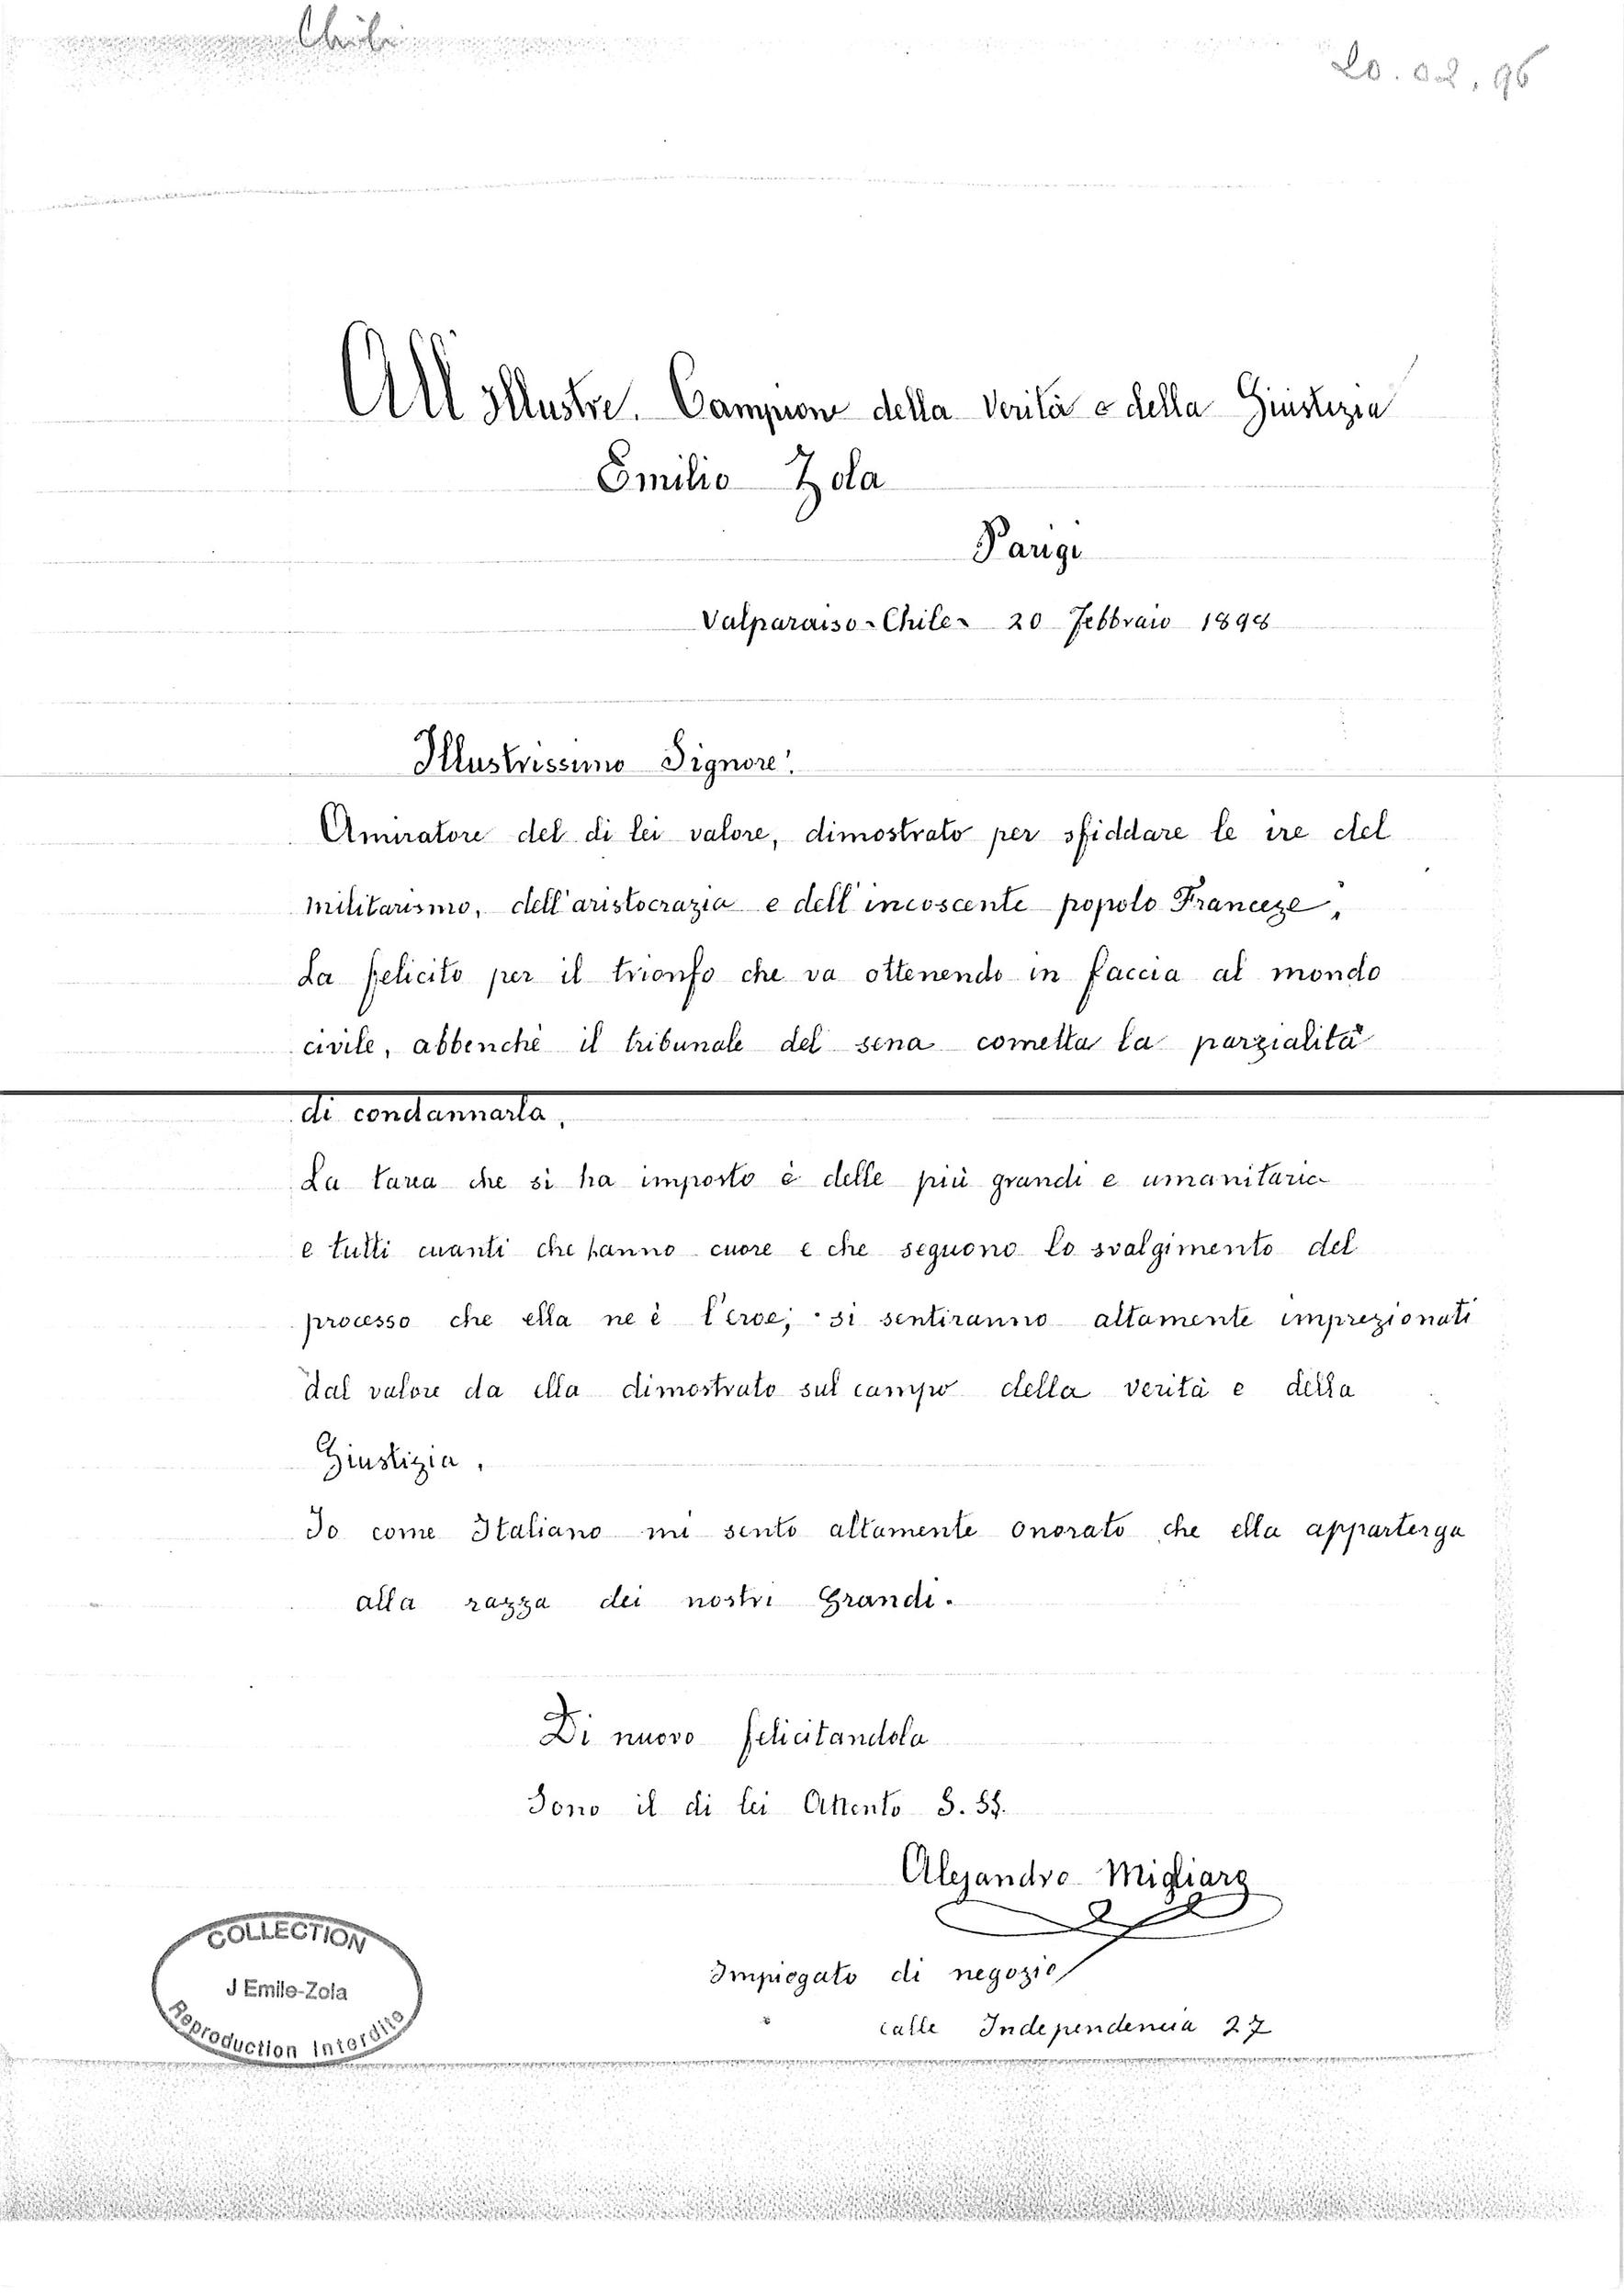 Chili
20.02.96
All illustre. Campione della Verità e della Giustizia
Emilio Zola
Parigi
Valparaiso - Chile - 20 Febbraio 1898
Illustrissimo Signore!
Amiratore del di lei valore, dimostrato per sfiddare le ire del
militarismo, dell'aristocrazia e dell'incoscente popolo Franceze,
La felicito per il trionfo che va ottenendo in faccia al mondo
civile, abbenchè il tribunale del sena cometta la parzialità
di condannarla,
La tarea che si ha imposto è delle più grandi e umanitarie
e tutti cuanti che hanno cuore e che seguono lo svalgimento del
processo che ella ne è l'eroe; si sentiranno altamente imprezionati
dal valore da ella dimostrato sul campo della verità e della
Giustizia.
Io come Italiano mi sento altamente onorato che ella apparterga
alla razza dei nostri Grandi.
Di nuovo felicitandola
Sono il di lei Attento S. SS.
Alejandro Migliaro
Impiegato di negozio
calle Independencia 27
COLLECTION
J Emile-Zola
Reproduction Interdite